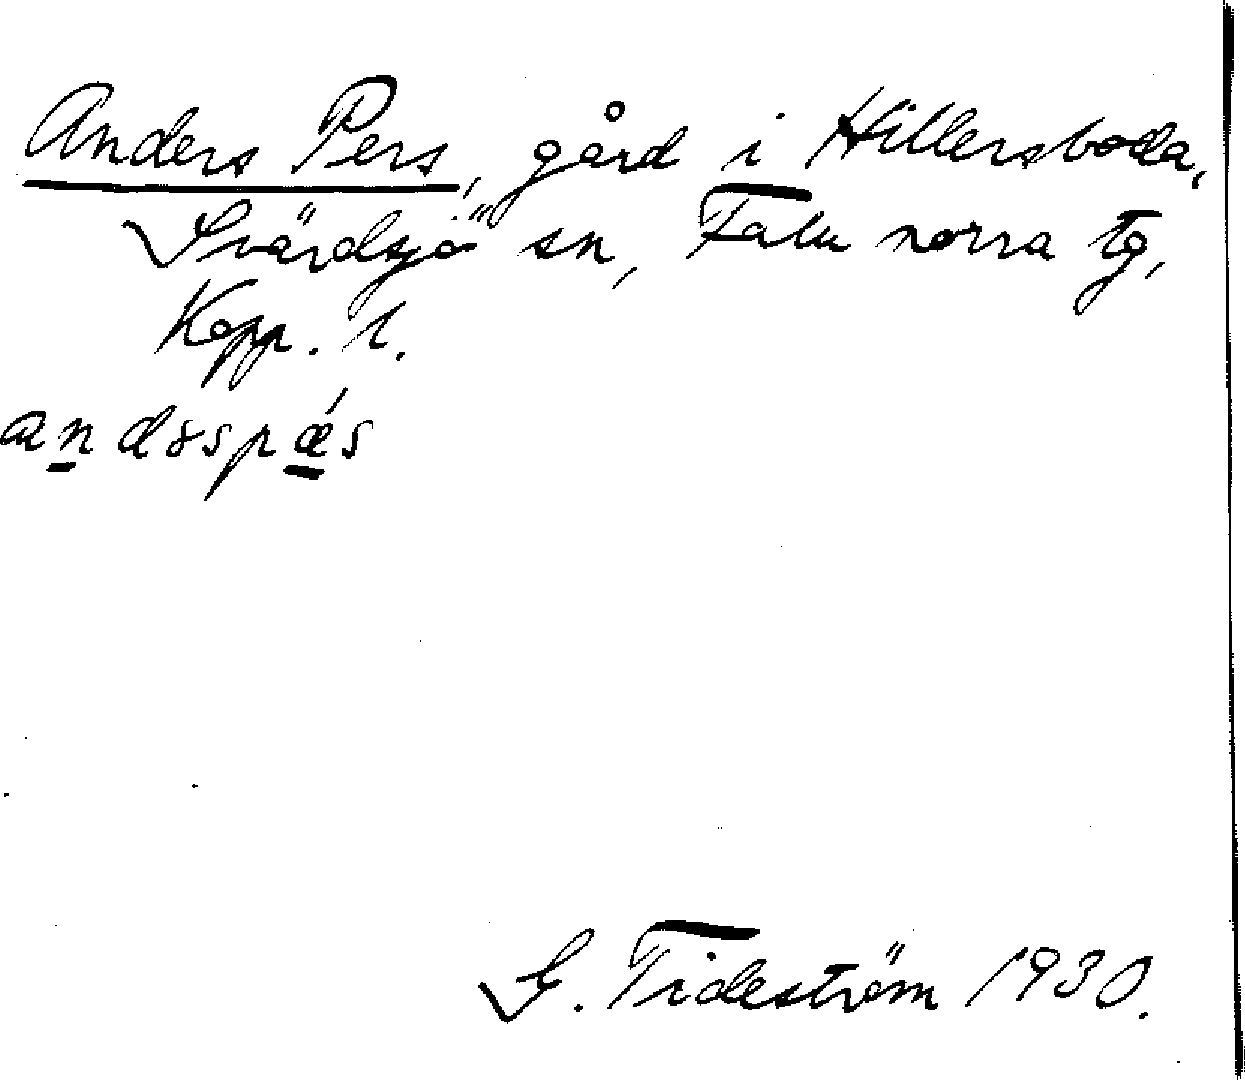 Anders Pers, gård i Hillersboda,
Svärdsjö sn, Falu norra tg,
Kopp. l.
andsspǽs
G. Tideström 1930.